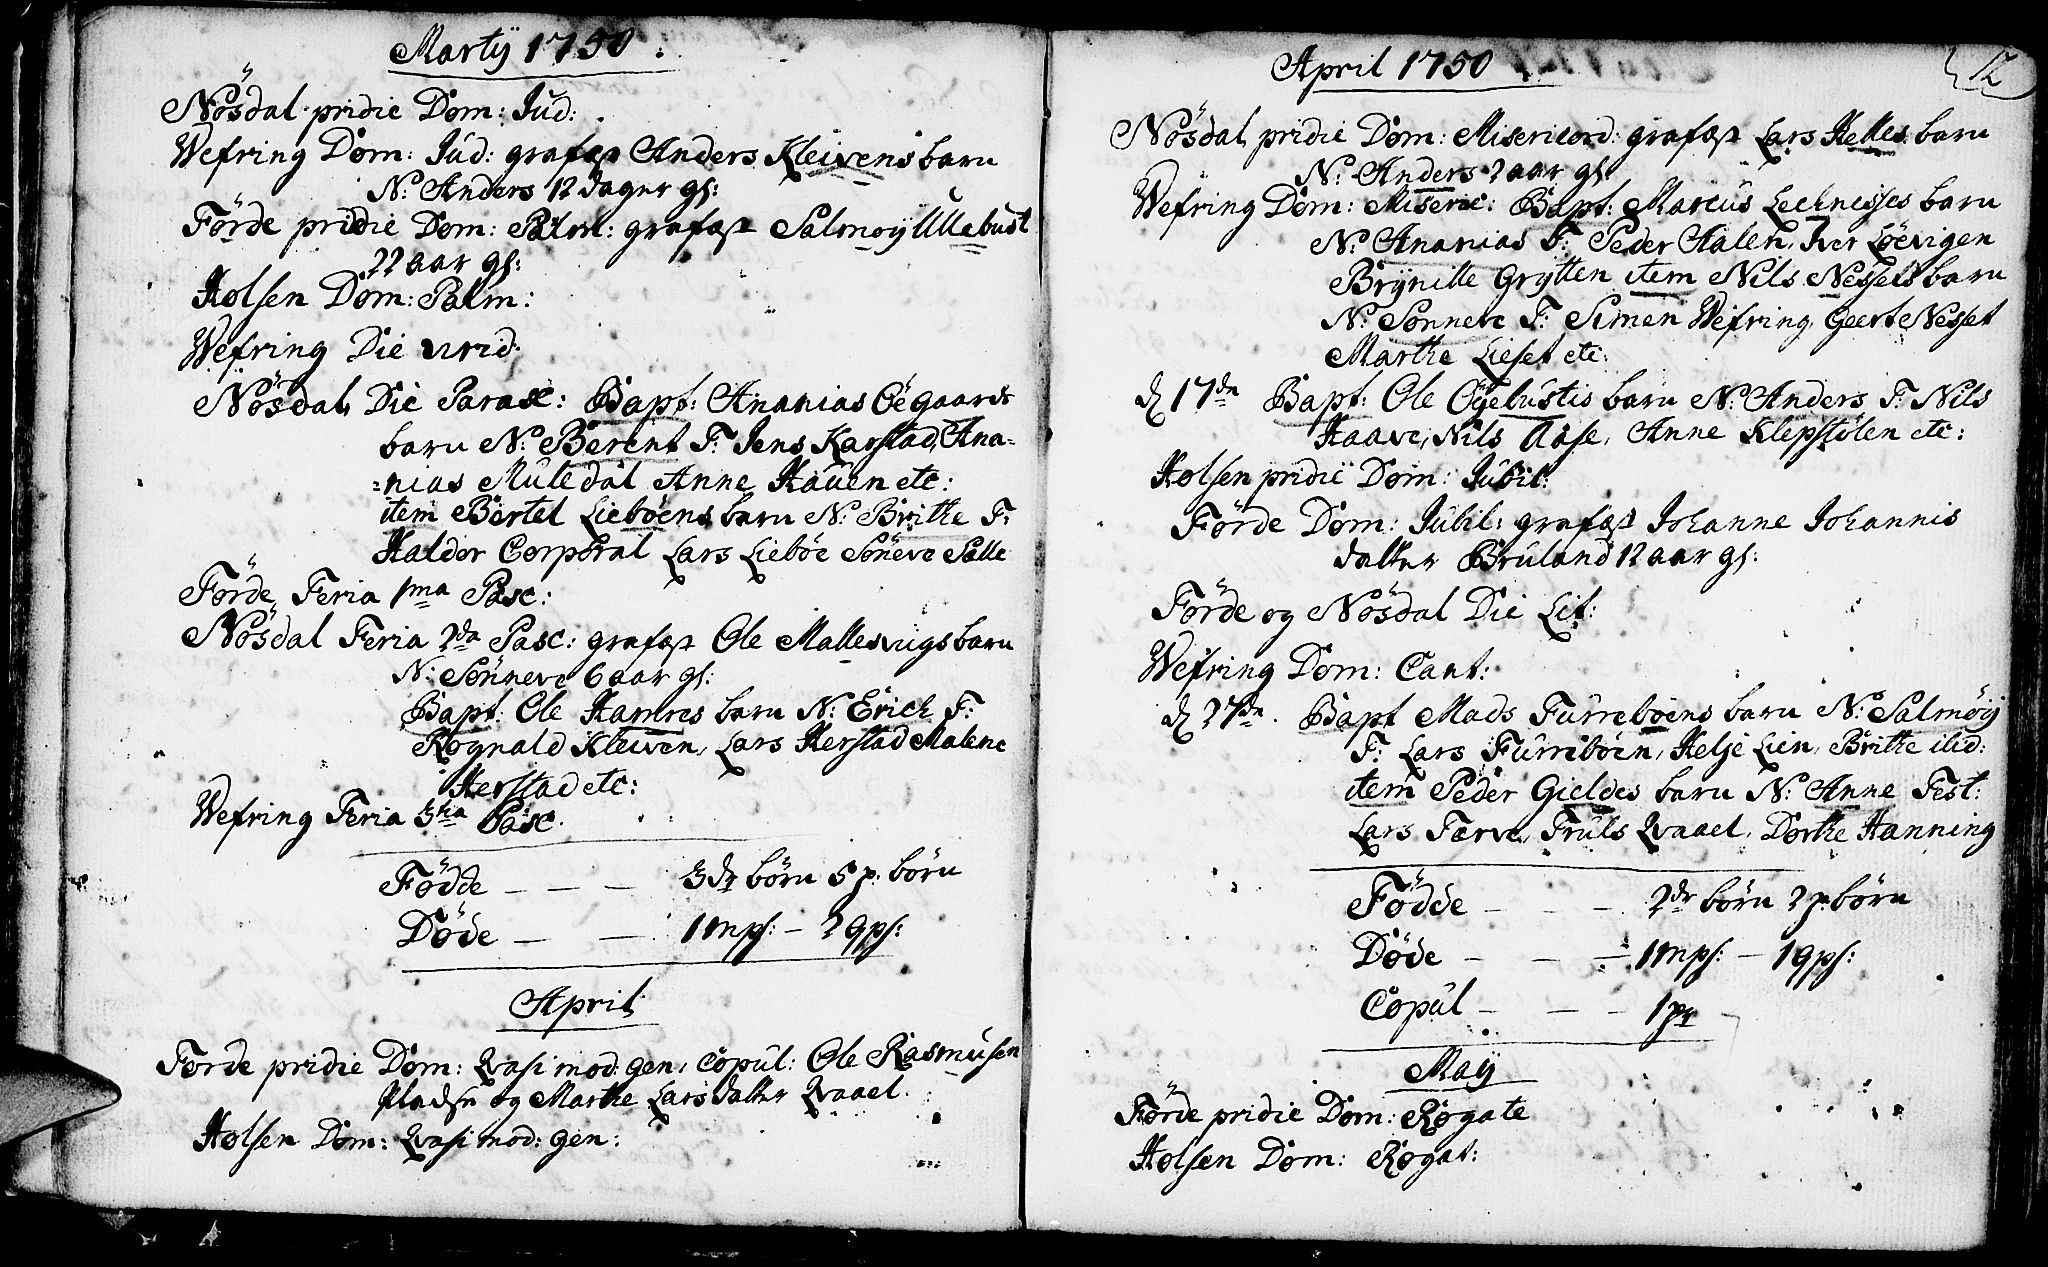 Martij 1750.
Nösdal pridie Dom: Jud:
Wefring Dom: Jud: grafæst Anders Kleivens barn
N: Anders 12 dager gl:
Förde pridie Dom: Palm: grafæst Salmoÿ Ullebust
22 aar gl:
Holsen Dom: Palm:
Wefring Die virid:
Nösdal Die Parasc: Bapt: Ananias Öegaards
barn N: Berent F: Jens Karstad, Ana=
=nias Mutedal Anne Hauen etc:
item Bertel Lieböens barn N: Brithe F:
Haldor Corporal Lars Lieböe Söneve Salle
Förde Feria 1ma Pasc:
Nösdal Feria 2da Pasc: grafæst Ole Mallesvigs barn
N: Sönneve 6 aar gl:
Bapt: Ole Hamres barn N: Erich F:
Rognald Kleiven, Lars Herstad Malene
Herstad etc:
Wefring Feria 3tia Pasc.
Födde — — — 3 dr börn 5 p. börn
Döde — — 1 mps: — 2 qps:
April
Förde pridie Dom: Qvasi mod: gen, Copul: Ole Rasmusen
Pladsen og Marthe Lars datter Qvaael.
Holsen Dom: Qvasi mod: gen:
April 1750
12
Nösdal pridie Dom: Misericord: grafæst Lars Helles barn
N: Anders 2 aar gl:
Wefring Dom: Miseric: Bapt: Marcus Lechnesses barn
N: Ananias F: Peder Halen, Iver Löevigen
Brÿnille Grÿtten item Nils Nessets barn
N: Sönneve F: Simen Wefring, Geert Nesset
Marthe Lieset etc:
d 17de Bapt: Ole Öÿebustis barn N: Anders F: Nils
Haave, Nils Aase, Anne Klepstölen etc:
Holsen pridie Dom: Jubil:
Förde Dom: Jubil: grafæst Johanne Johannis
datter Bruland 12 aar gl:
Förde og Nösdal Die Lit:
Wefring Dom: Cant:
d 27de. Bapt Mads Furreböens barn N: Salmöÿ
F: Lars Furreböen, Helje Lien, Brithe ibid:
item Peder Gieldes barn N: Anne Test:
Lars Farve, Truls Qvaael, Dorthe Hanning
Födde — — — 2 dr börn 2 p. börn
Döde — — — 1 mps: — 1 qps:
Copul — — — 1 pr
Maÿ
Förde pridie Dom: Rogate
Holsen Dom: Rogat: